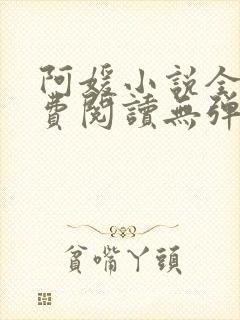 阿媛小说全
費閱讀無彈
貧嘴丫頭